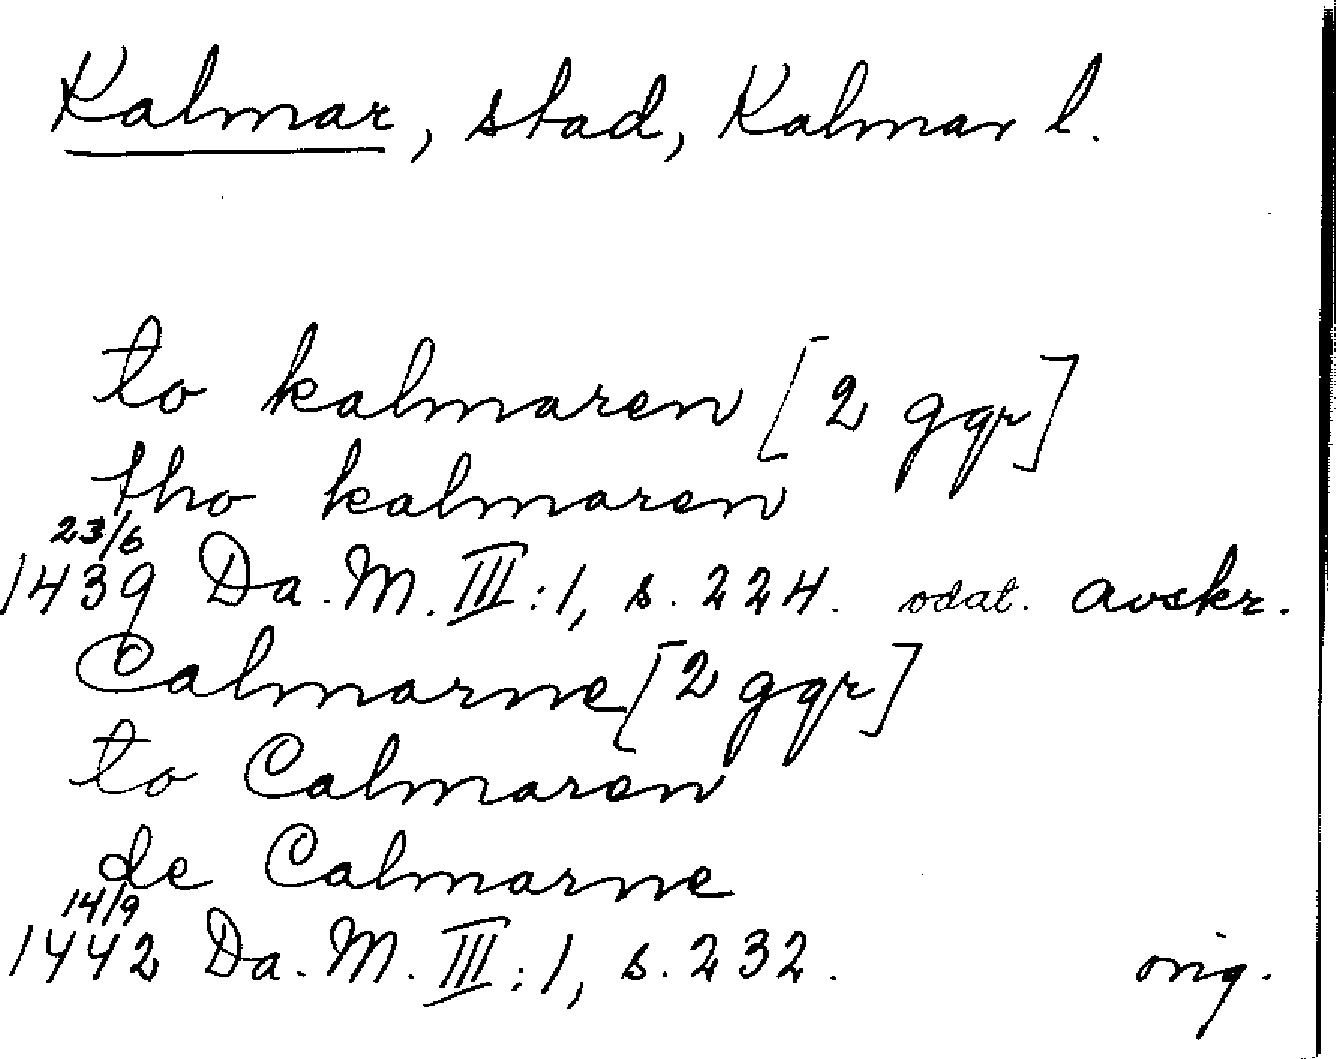 Kalmar, stad, Kalmar l.
to kalmaren [2 ggr]
tho kalmaren
23/6
1439 Da. M. III:1, s. 224. odat. avskr.
Calmarne [2 ggr]
to Calmaren
de Calmarne
14/9
1442 Da. M. III:1, s. 232. orig.